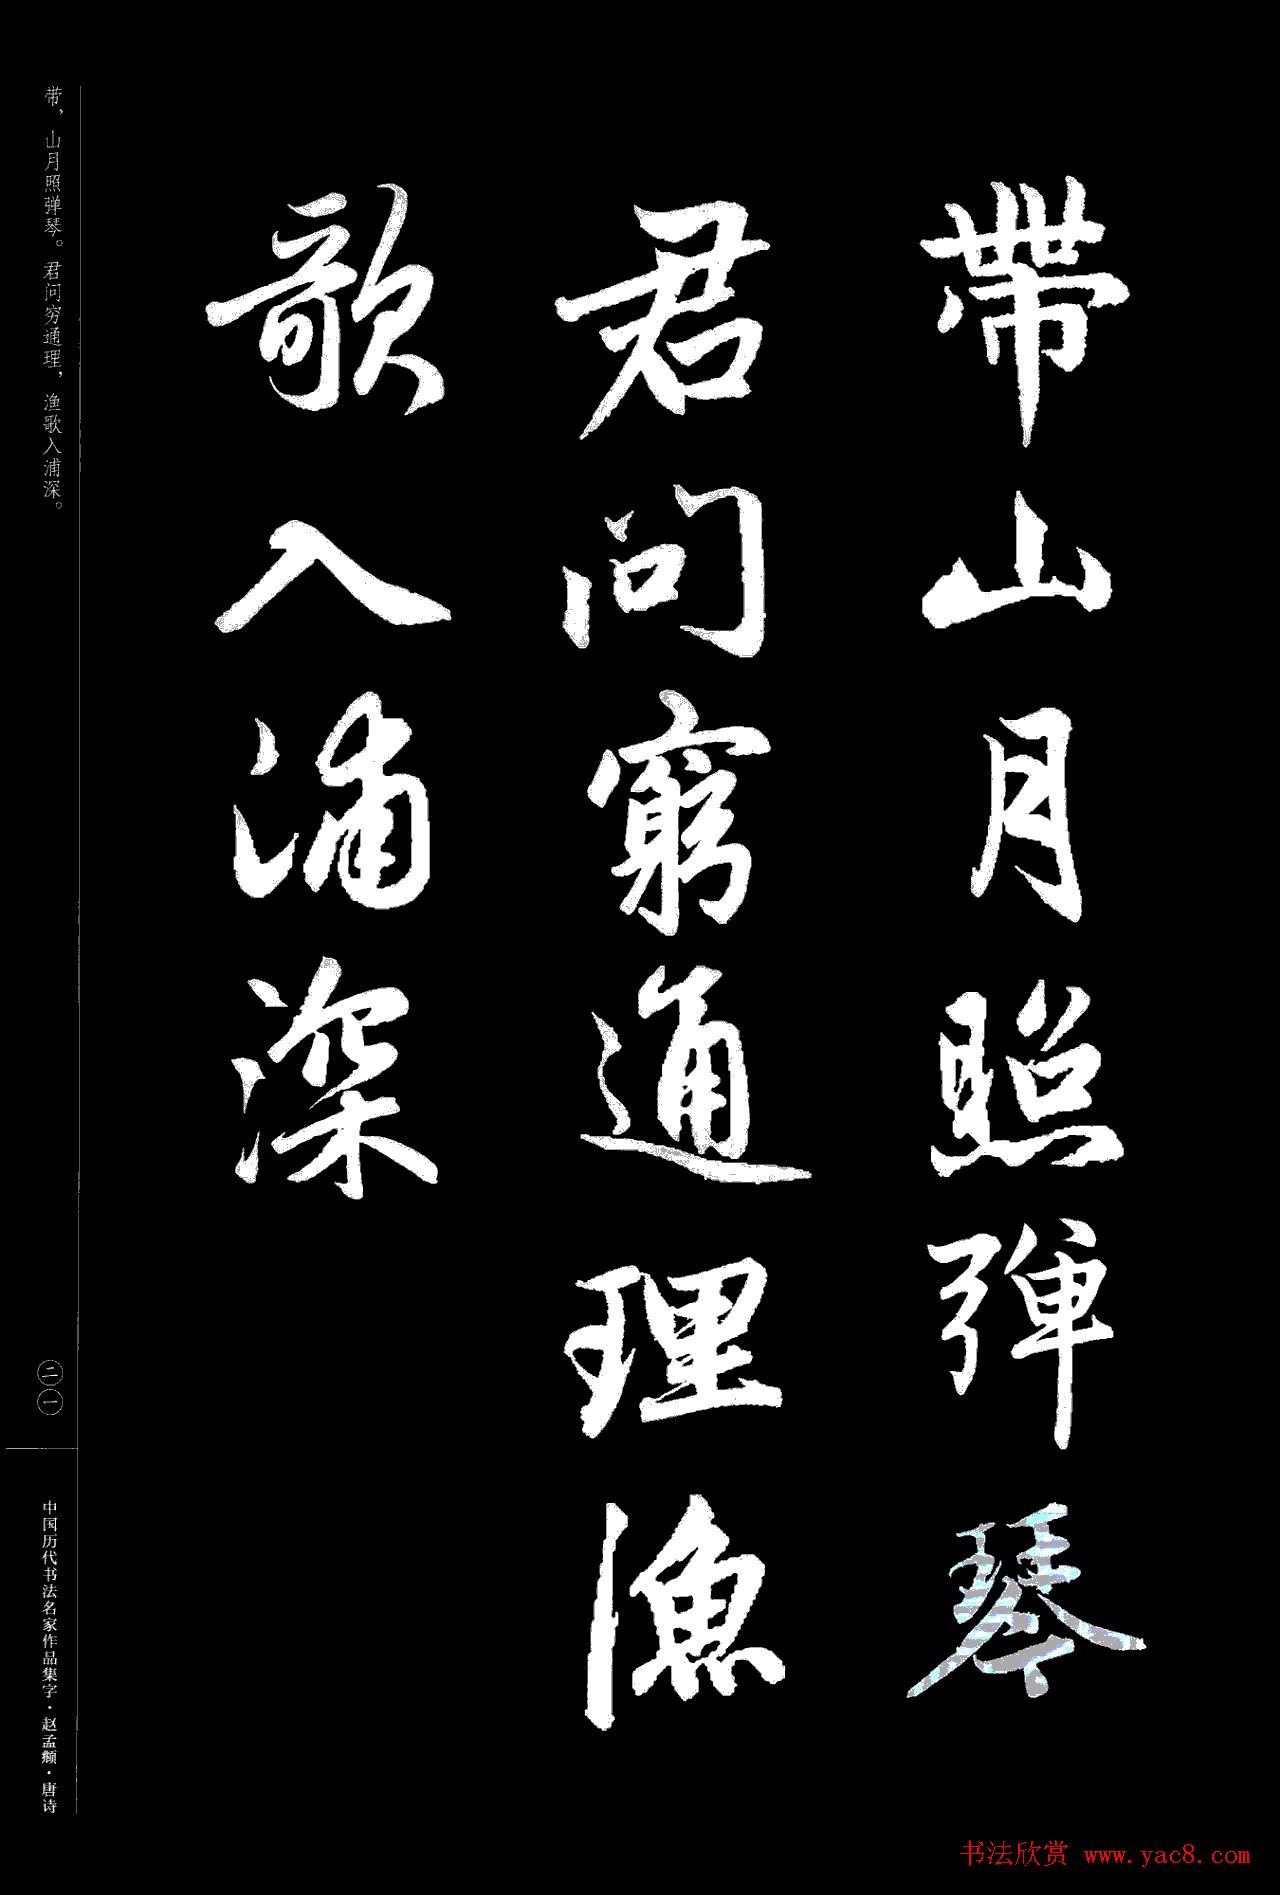 帶山月照彈琴
君问窮通理漁
歌入浦深
带，山月照弹琴。君问穷通理，渔歌入浦深。
二一
中国历代书法名家作品集字·赵孟頫·唐诗
书法欣赏 www.yac8.com